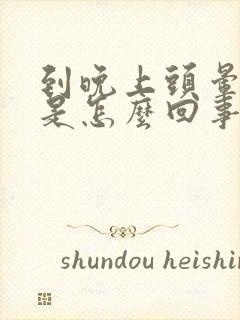 到晚上頭暈
是怎麼回事
shundou heishin